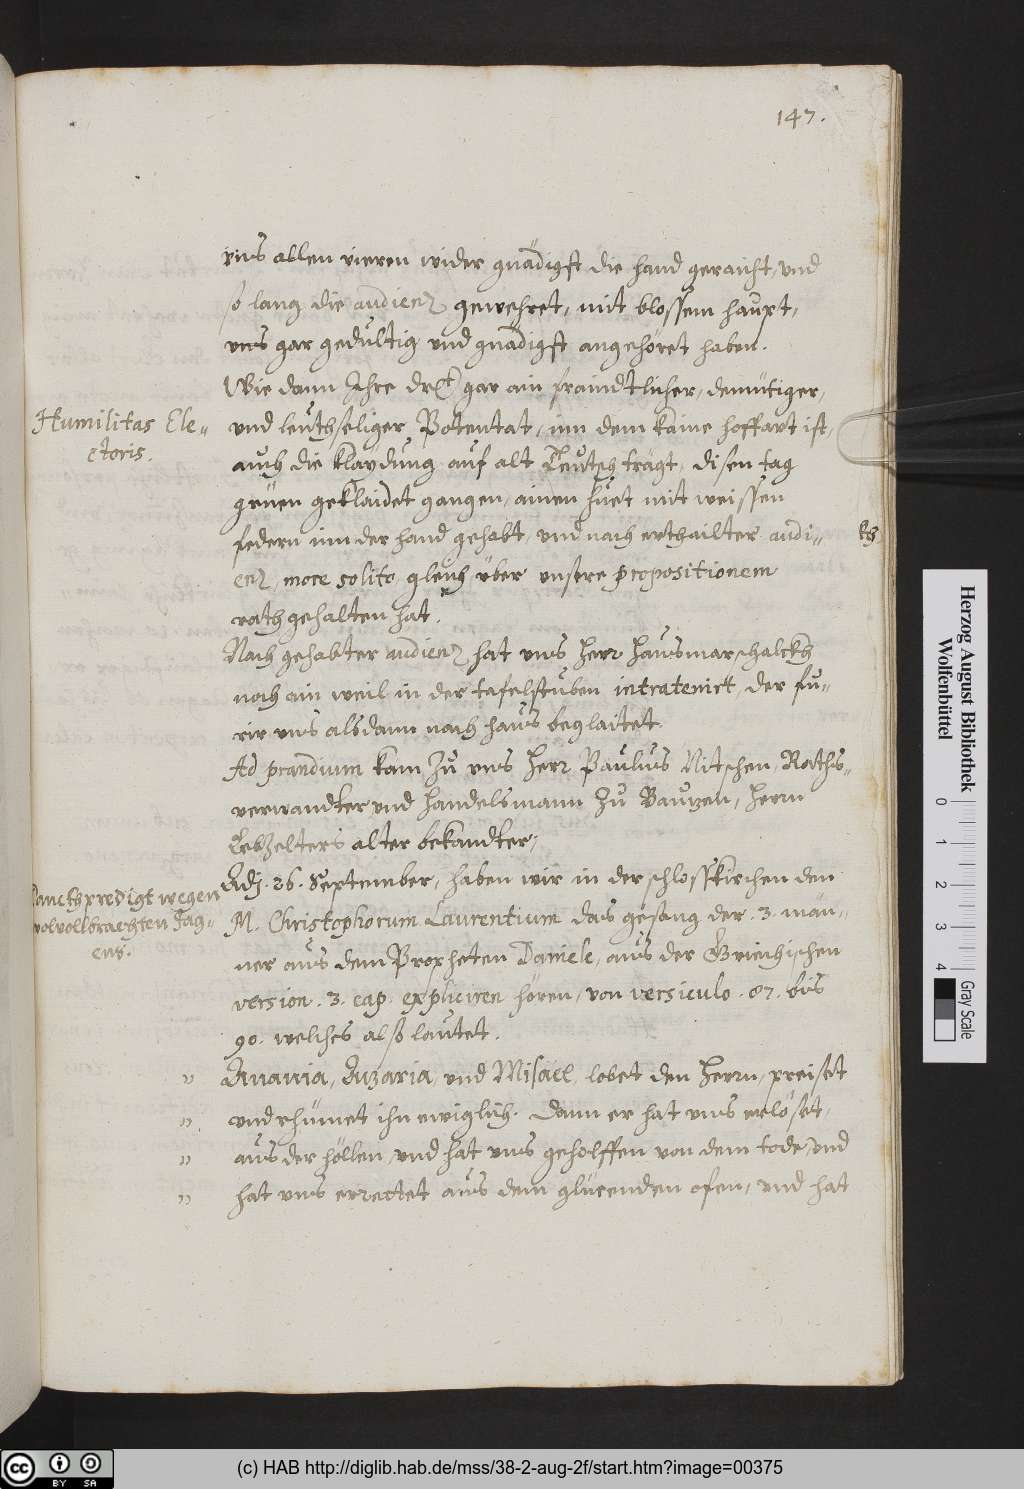 147.
vns allen vieren wider gnädigst die hand geraicht, vnd
so lang die audienz gewehret, mit blossem haupt,
vns gar gedultig vnd gnädigst angehöret haben.
Wie dann Ihre gar ain fraindtlicher, demütiger,
Humilitas Ele-
ctoris.
vnd leuthseliger Potentat, inn dem kaine hoffart ist,
auch die klaydung auf alt Teutsch trägt, disen tag
gruen geklaidet gangen, ainen huet mit weissen
federn inn der hand gehabt, vnd nach erthailter audi-
enz, more solito, gleich über vnsere propositionem
rath gehalten hat.
Nach gehabter audienz hat vns Herr Hausmarschalckh
noch ain weil in der tafelstuben intratenirt, der fu-
rir vns alsdann nach haus beglaitet.
Ad prandium kam zu vns Herr Paulus Nitschen, Raths-
verwandter vnd handelsmann zu Bauzen, Herrn
Lebzelters alter bekandter,
Danckhpredigt wegen
wolvollbrachten Jag-
ens.
Adj. 26. September, haben wir in der schlosskirchen den
M. Christophorum Laurentium das gesang der .3. män-
ner aus dem Propheten Daniele, aus der Griechischen
version .3. cap. expliciren hören, von versiculo .87. bis
90. welches also lautet.
" Anania, Azaria, vnd Misael, lobet den Herrn, preiset
" vnd rhümet ihn ewiglich. Dann er hat vns erlöset,
" aus der höllen, vnd hat vns geholffen von dem tode, vnd
" hat vns errettet aus dem glüenden ofen, vnd hat
Herzog August Bibliothek
Wolfenbüttel
0 1 2 3 4
Gray Scale
cc BY SA
(c) HAB http://diglib.hab.de/mss/38-2-aug-2f/start.htm?image=00375